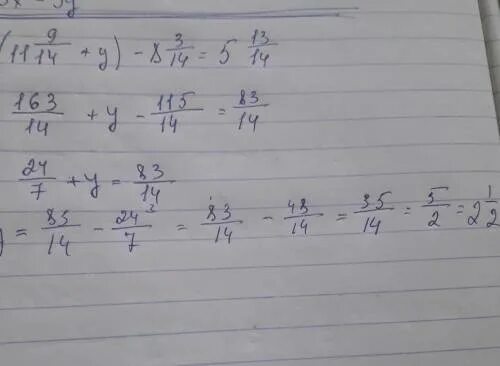 (11 9/14 + y) - 8 3/14 = 5 13/14
163/14 + y - 115/14 = 83/14
24/7 + y = 83/14
= 83/14 - 24/7 ² = 83/14 - 48/14 = 35/14 = 5/2 = 2 1/2